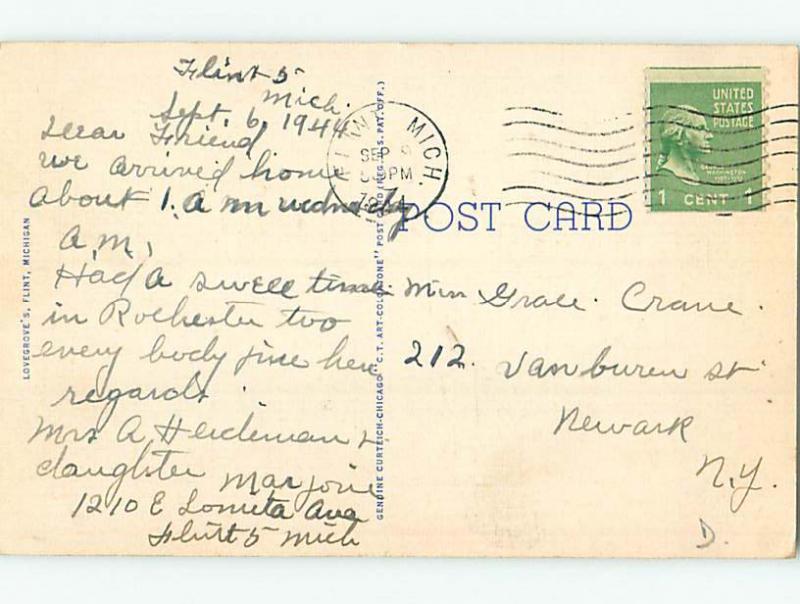 Flint 5
Mich.
Sept. 6, 1944
Dear Friend
we arrived home
about 1. a m wednesday
a.m.
Had a swell time
in Rochester too
every body fine here
regards.
Mrs A. Heideman &
daughter Marjorie
1210 E Lomita Ave
Flint 5 Mich
LOVEGROVE'S, FLINT, MICHIGAN
GENUINE CURTEICH-CHICAGO "C.T. ART-COLORTONE" POST CARD (REG. U.S. PAT. OFF.)
FLINT MICH.
SEP 6
PM
1944
UNITED
STATES
POSTAGE
GEORGE
WASHINGTON
1 CENT 1
POST CARD
Miss Grace. Crane.
212. Van buren st
Newark
N.Y.
D.